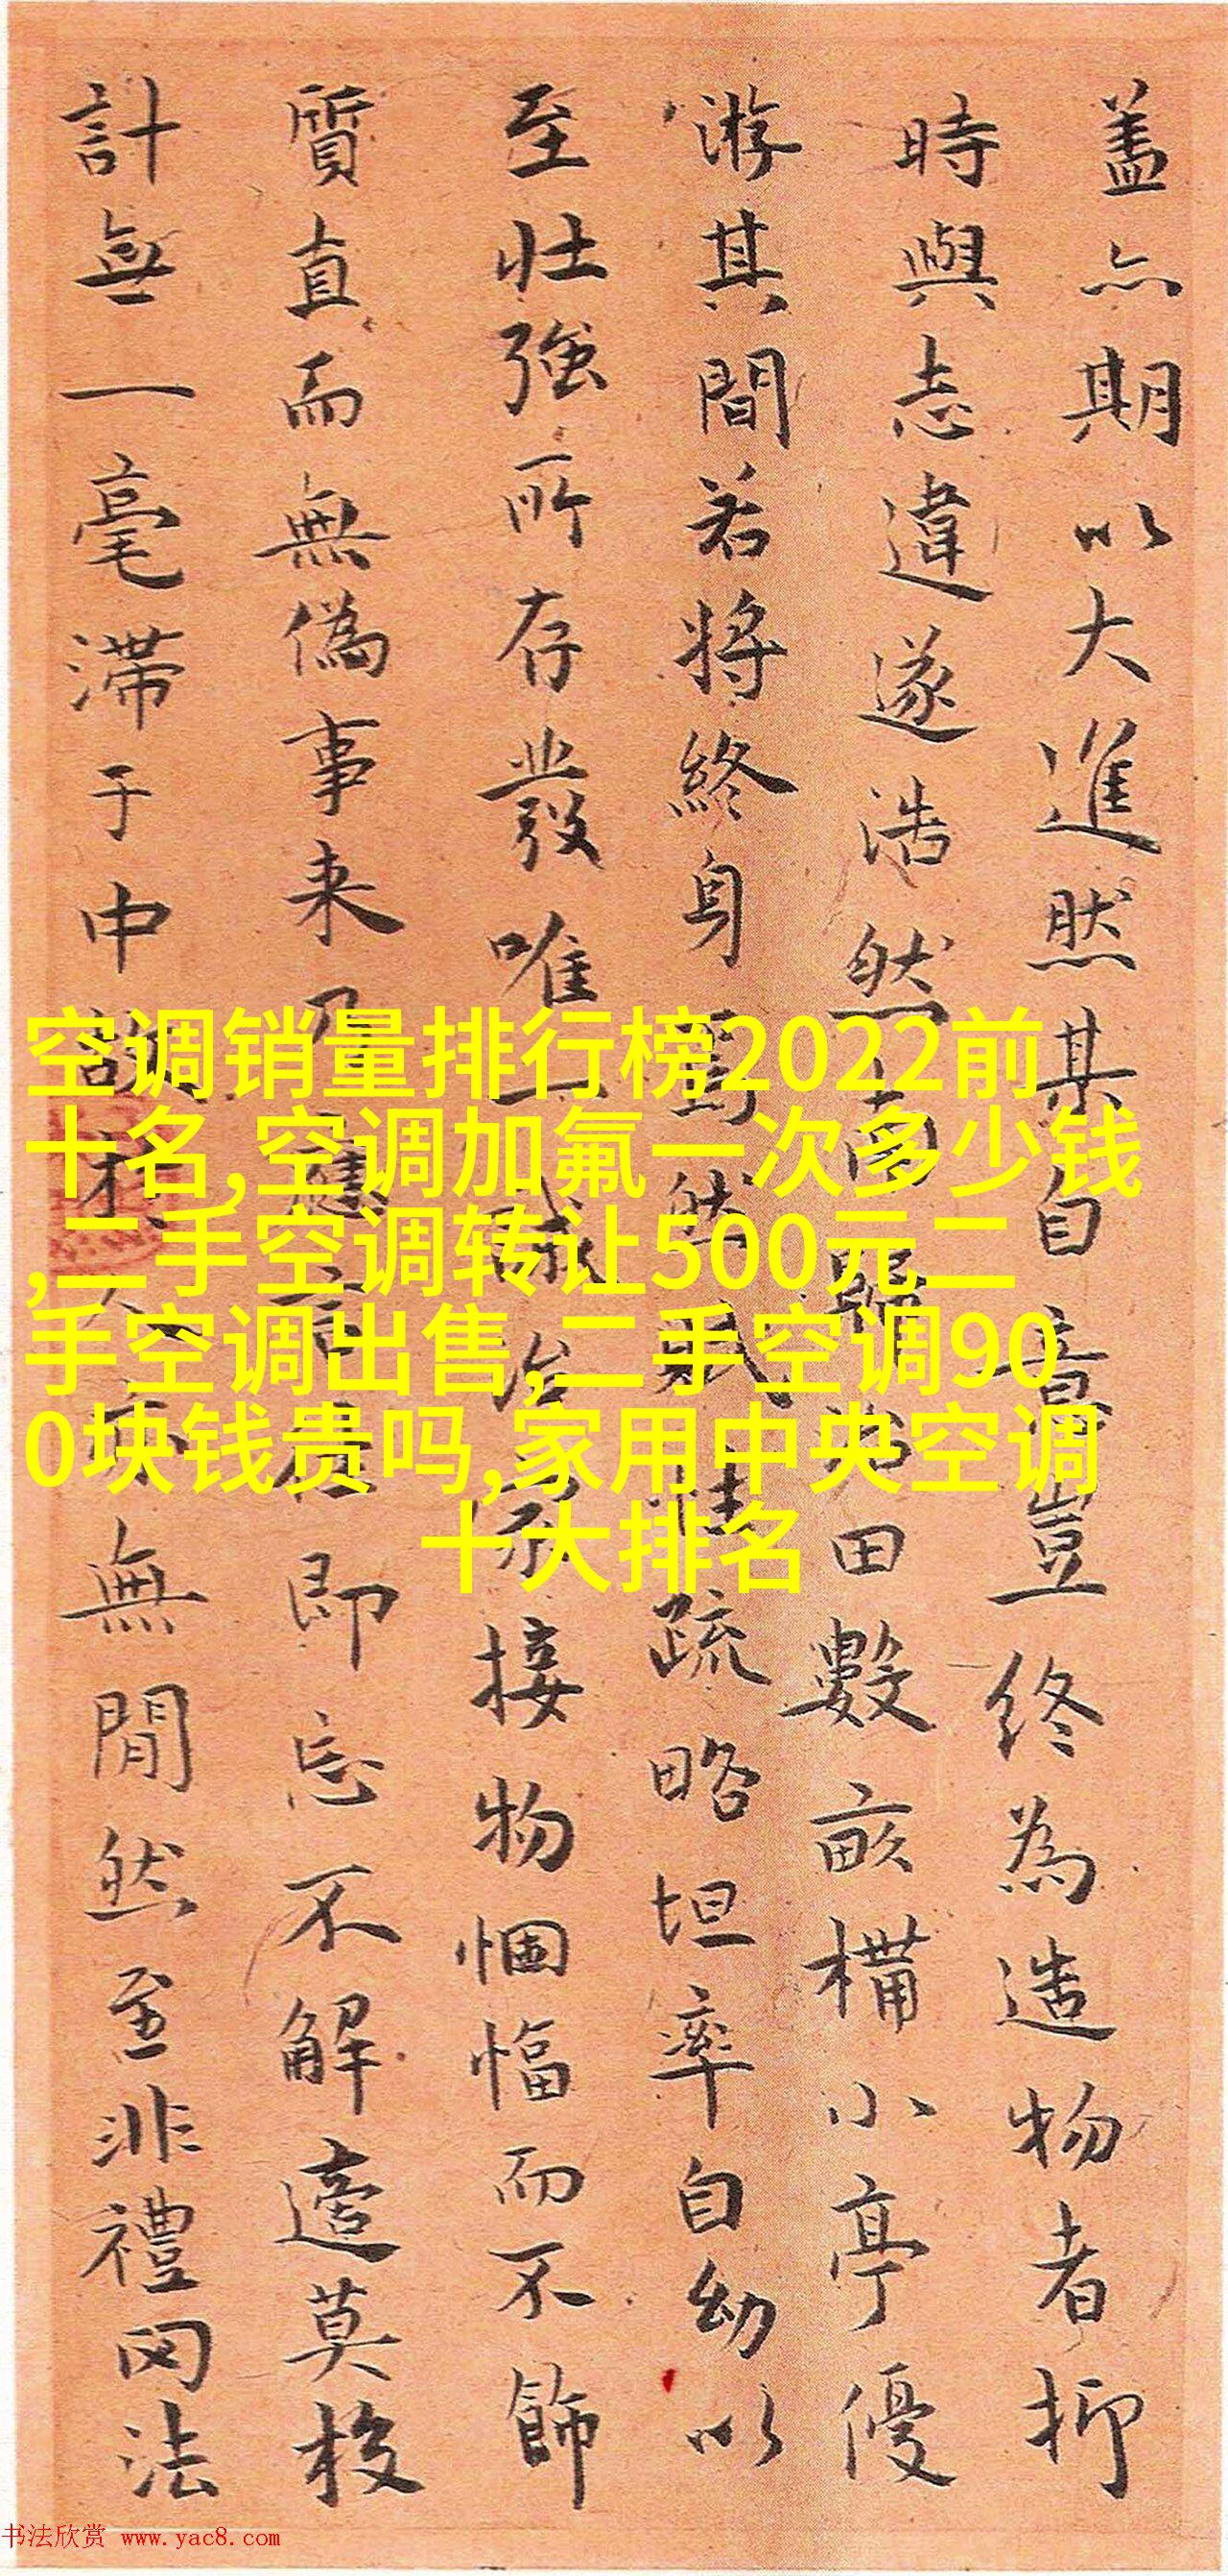 盖亦期以大進然某自意豈终為造物者抑
時與志違遂浩然而歸治田數畝構小亭優
游其間若将終身焉然賦性疏略坦率自幼以
至壮強所存發唯一誠治家接物悃愊而不飾
質直而無偽事来乃應即忘不解適莫校
計無一毫滯于中故於人亦無閒然至非禮罔法
空调销量排行榜2022前
十名,空调加氟一次多少钱
,二手空调转让500元二
手空调出售,二手空调90
0块钱贵吗,家用中央空调
十大排名
书法欣赏 www.yac8.com